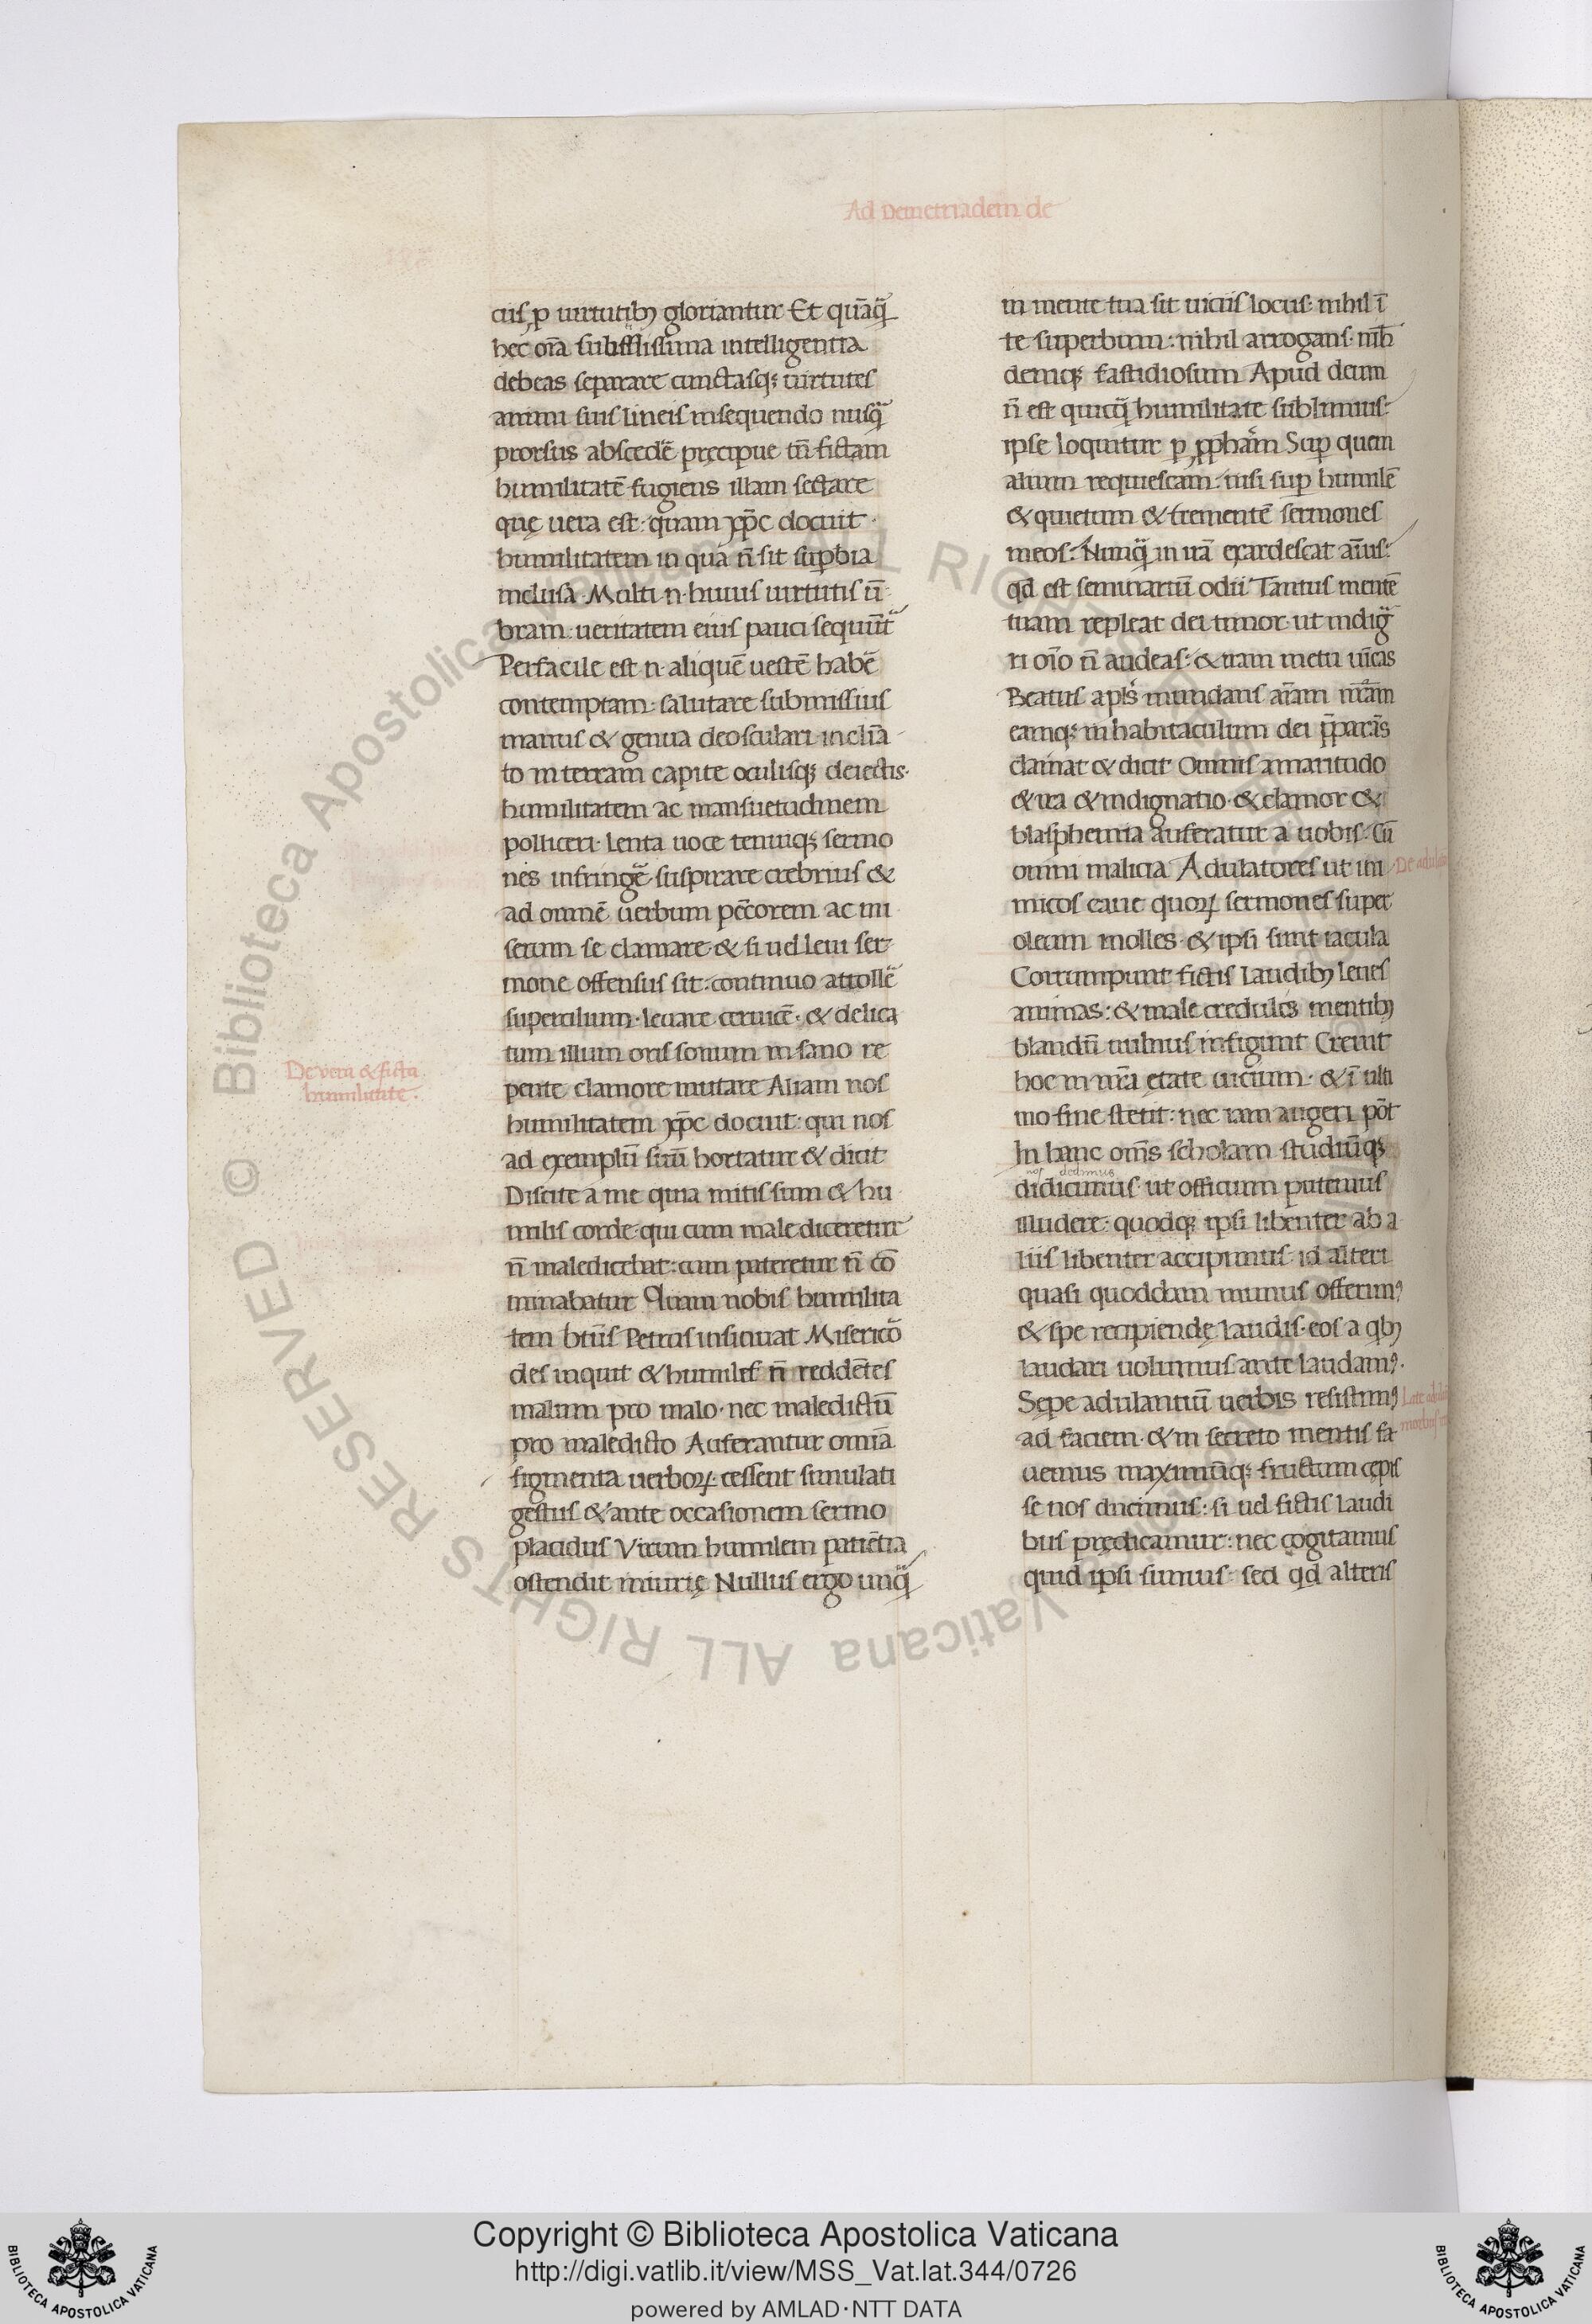 Ad Demetriadem de
ciis ꝓ uirtutibꝫ gloriantur Et quāq̄
hec oīa subtilissima intelligentia
debeas separare cunctasqꝫ uirtutes
animi suis lineis insequendo nusq̄
prorsus abscedē pręcipue tn̄ fictam
humilitatē fugiens illam sectare
quę uera est· quam xp̄c docuit·
humilitatem in qua n̄ sit suꝑbia
inclusa· Multi ·n· huius uirtutis ū
bram: ueritatem eius pauci sequūt̄
Perfacile est ·n· aliquē uestē habē
contemptam: salutare submissius
manus & genua deosculari· inclīa
to in terram capite oculisqꝫ deiectis·
humilitatem ac mansuetudinem
polliceri· lenta uoce tenuiqꝫ sermo
nes infringē· suspirare crebrius &
ad omnē uerbum pēcorem ac mi
serum se clamare· & si uel leui ser
mone offensus sit: continuo attollē
supercilium· leuare ceruicē· & delica
tum illum oris sonum insano re
pente clamore mutare Aliam nos
humilitatem xp̄c docuit: qui nos
ad exemplū suū hortatur & dicit
Discite a me quia mitis sum & hu
milis corde· qui cum malediceretur
n̄ maledicebat: cum pateretur n̄ cō
minabatur Quam nobis humilita
tem btūs Petrus insinuat Misericō
des inquit & humiles n̄ reddētes
malum pro malo· nec maledictū
pro maledicto Auferantur omīa
figmenta uerboꝝ· cessent simulati
gestus & ante occasionem sermo
placidus Virum humilem patiētia
ostendit iniurię Nullus ergo unq̄
De vera & ficta
humilitate·
in mente tua sit uiciis locus· nihil ī
te superbum: nihil arrogans· nih̄
deniqꝫ fastidiosum Apud deum
n̄ est quicq̄ humilitate sublimius:
ipse loquitur ꝑ ꝓpham Suꝑ quem
alium requiescam: nisi suꝑ humilē
& quietum & trementē sermones
meos: Nunq̄ in iram exardescat aīus:
qd̄ est seminariū odii Tantus mentē
tuam repleat dei timor· ut indig
ri oīo n̄ audeas: & iram metu uīcas
Beatus apls̄ mundans aīam nr̄am
eamqꝫ in habitaculum dei p̄parās
clamat & dicit Omnis amaritudo
& ira & indignatio· & clamor &
blasphemia auferatur a uobis· Cū
omni malicia Adulatores ut ini
micos caue quoꝝ sermones super
oleum molles· & ipsi sunt iacula
Corrumpunt fictis laudibꝫ leues
animas: & male credulis mentibꝫ
blandū uulnus infigunt Creuit
hoc in nr̄a etate uicium· & ī ulti
mo fine stetit: nec iam augeri pōt
In hanc oms̄ scholam studiūqꝫ
nos dedimus
didicimus· ut officium putemus
illudere· quodqꝫ ipsi libenter ab a
liis libenter accipimus· id alteri
quasi quoddam munus offerimꝰ
& spe recipiendę laudis· eos a qbꝫ
laudari uolumus ante laudamꝰ·
Sępe adulantiū uerbis resistimꝰ
ad faciem· & in secreto mentis fa
uemus maximūqꝫ fructum cępis
se nos ducimus: si uel fictis laudi
bus prędicamur: nec cogitamus
quid ipsi sumus: sed qd̄ alteris
De adulat
Late
Copyright © Biblioteca Apostolica Vaticana
http://digi.vatlib.it/view/MSS_Vat.lat.344/0726
powered by AMLAD·NTT DATA
BIBLIOTECA APOSTOLICA VATICANA
BIBLIOTECA APOSTOLICA VATICANA
© Biblioteca Apostolica Vaticana ALL RIGHTS RESERVED
© Biblioteca Apostolica Vaticana ALL RIGHTS RESERVED